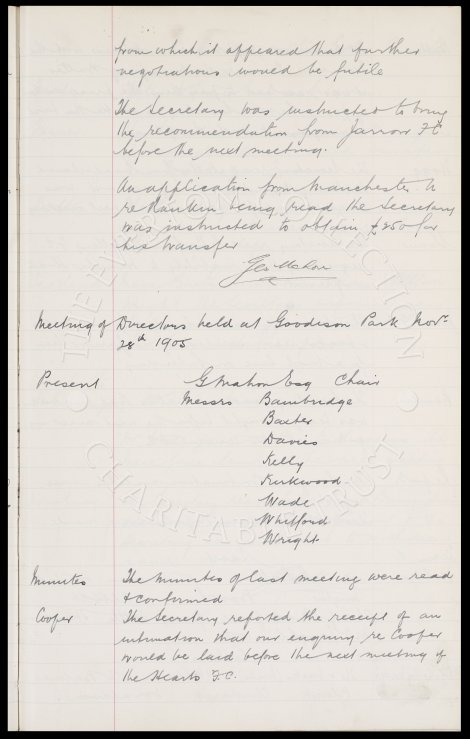 from which it appeared that further
negotiations would be futile
The Secretary was instructed to bring
the recommendation from Jarrow F.C
before the next meeting.
An application from Manchester U
re Rankin being read the Secretary
was instructed to obtain £250 for
his transfer
Geo Mahon
Meeting of Directors held at Goodison Park Novr
28th 1905
Present G Mahon Esq Chair
Messrs Bainbridge
Baxter
Davies
Kelly
Kirkwood
Wade
Whitford
Wright
Minutes The minutes of last meeting were read
& confirmed
Cooper The Secretary reported the receipt of an
intimation that our enquiry re Cooper
would be laid before the next meeting of
the Hearts F.C.
THE EVERTON COLLECTION
CHARITABLE TRUST